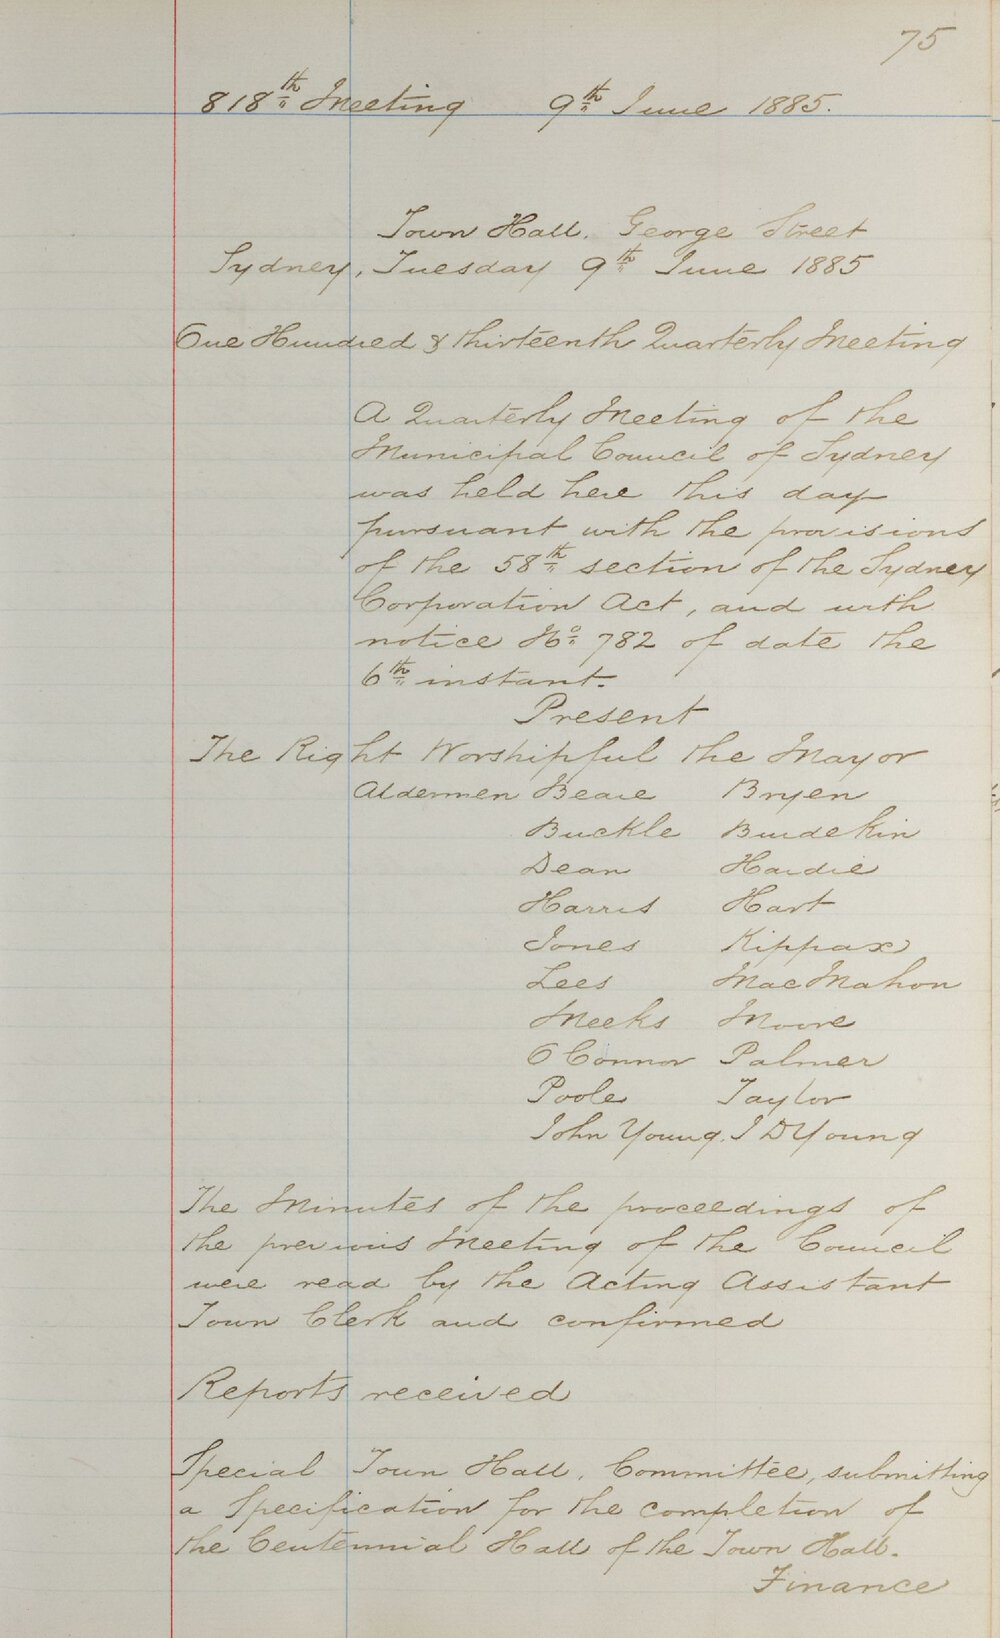 75
818th Meeting 9th June 1885.
Town Hall. George Street
Sydney, Tuesday 9th June 1885
One Hundred & thirteenth Quarterly Meeting
A Quarterly Meeting of the
Municipal Council of Sydney
was held here this day
pursuant with the provisions
of the 58th section of the Sydney
Corporation Act, and with
notice No 782 of date the
6th instant.
Present
The Right Worshipful the Mayor
Aldermen Beare Bryen
Buckle Burdekin
Dean Hardie
Harris Hart
Jones Kippax
Lees MacMahon
Meeks Moore
O'Connor Palmer
Poole Taylor
John Young. J D Young
The Minutes of the proceedings of
the previous Meeting of the Council
were read by the Acting Assistant
Town Clerk and confirmed
Reports received
Special Town Hall. Committee, submitting
a Specification for the completion of
the Centennial Hall of the Town Hall.
Finance